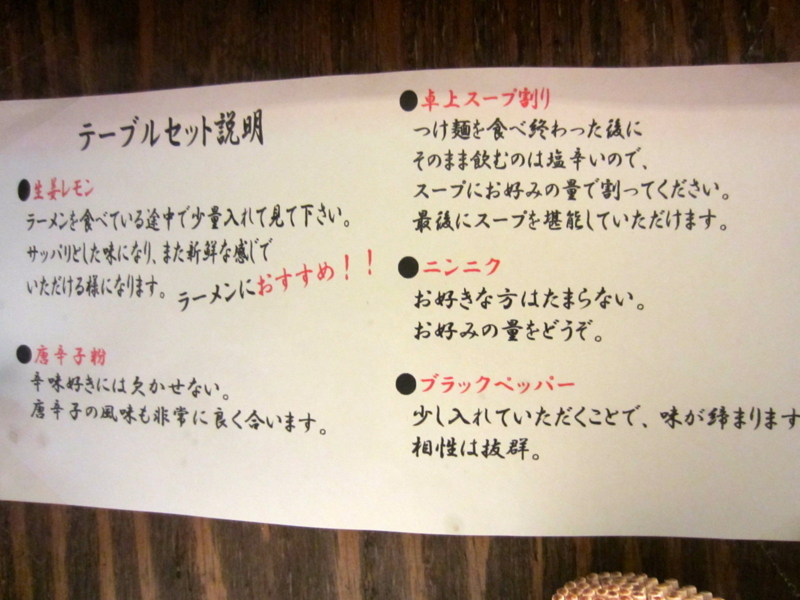 テーブルセット説明
●生姜レモン
ラーメンを食べている途中で少量入れて見て下さい。
サッパリとした味になり、また新鮮な感じで
いただける様になります。
ラーメンにおすすめ！！
●唐辛子粉
辛味好きには欠かせない。
唐辛子の風味も非常に良く合います。
●卓上スープ割り
つけ麺を食べ終わった後に
そのまま飲むのは塩辛いので、
スープにお好みの量で割ってください。
最後にスープを堪能していただけます。
●ニンニク
お好きな方はたまらない。
お好みの量をどうぞ。
●ブラックペッパー
少し入れていただくことで、味が締まります
相性は抜群。